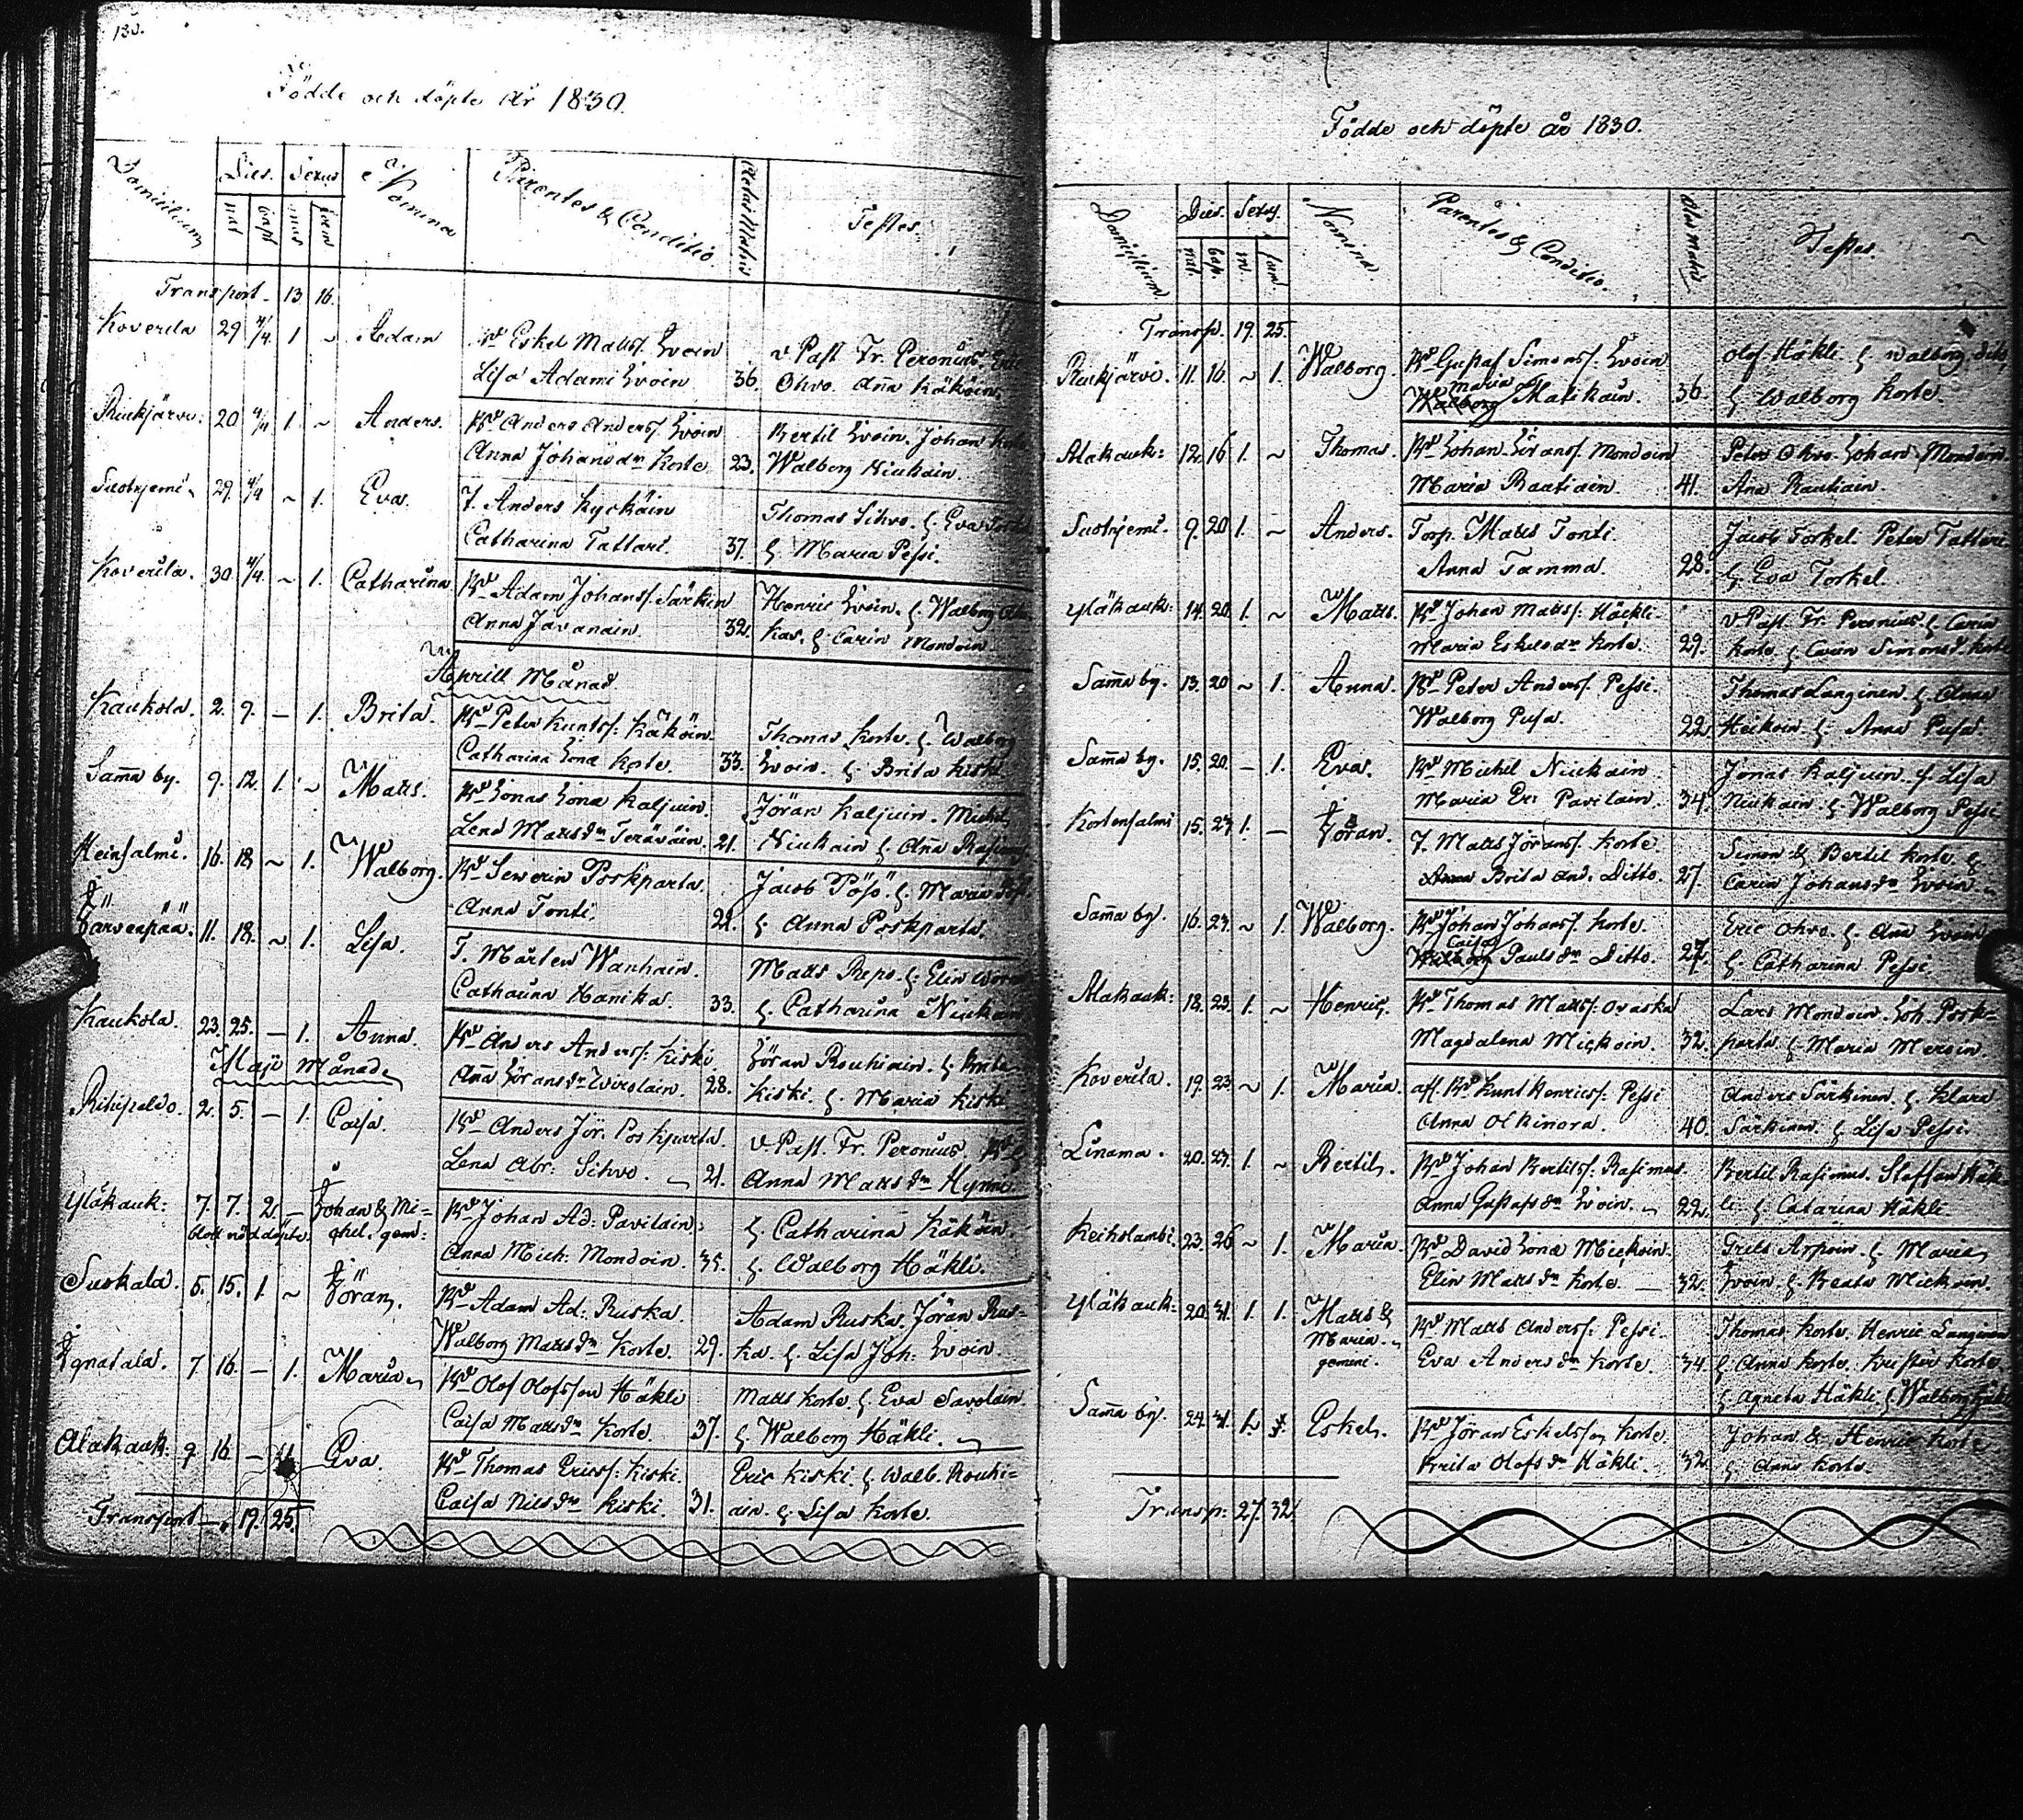 130.
Födde och döpte År 1830.
Domicilium Dies. Sexus Nomina Parentes & Conditio. Aetas Matris Testes.
nat bapt mas fœm
Transport 13 16.
Koverila 29 4/4 1 ~ Adam Bd Eskel Mattss. Ewoin v Past. Fr. Peronius,
Lisa Adami Ewoin 36. Ohvo. Aña Käköin
Riukjärvi. 20 4/4 1. ~ Anders. Bd Anders Anderss. Ewoin Bertil Ewoin. Johan
Anna Johansdr Korte 23. Walborg Niukain.
Suotniemi. 29. 4/4 ~ 1. Eva. T. Anders Kyckäin Thomas Sihvo. H. Eva
Catharina Tattari. 37. H. Maria Pessi.
Koverila. 30. 4/4. ~ 1. Catharina Bd Adam Johanss. Särkin Henric Ewoin. H. Walborg
Anna Javanain. 32. Kas. H. Carin Mondoin
Aprill Månad.
Kaukola. 2. 9. — 1. Brita. Bd Peter Kuntss. Käköin. Thomas Korte. H. Walborg
Catharina Korte. 33. Ewoin. H. Brita Kiski
Sama by. 9. 12. 1. ~ Matts. Bd Jonas Kaljuin. Jöran Kaljuin. Michel
Lena Mattsdr Terävain. 21. Niukain H. Aña Rasimus
Heinsalmi. 16. 18. ~ 1. Walborg. Bd Sewerin Poskparta. Jacob Pösö. H. Maria
Anna Tonti. 22. H. Anna Poskparta.
Järvenpää. 11. 18. ~ 1. Lisa. T. Mårten Wanhain. Matts Repo. H. Elin
Catharina Hanika. 33. H. Catharina Niukain
Kaukola. 23. 25. — 1. Anna. Bd Anders Anderss. Kiski Jöran Rouhiain. H. Brita
Aña Jöransdr Wirolain. 28. Kiski. H. Maria Kiski
Maji Månad.
Riihipeldo. 2. 5. — 1. Caisa. Bd Anders Jör. Poskparta. v. Past. Fr. Peronius.
Lena Abr: Sihvo. 21. Anna Mattsdr Hynni
Yläkauk: 7. 7. 2. — Johan & Mi= Bd Johan Ad: Pavilain. H. Catharina Käköin.
blott nöddöpte. chel. gem: Anna Mich: Mondoin. 35. H. Walborg Häkli.
Suokala. 5. 15. 1. ~ Jöran. Bd Adam Ad: Ruska. Adam Ruska. Jöran Rus=
Walborg Mattsdr Korte. 29. ka. H. Lisa Joh: Ewoin.
Ignatala. 7 16. — 1. Maria Bd Olof Olofsson Häkli Matts Korte. H. Eva Savolain.
Caisa Mattsdr Korte. 37. H. Walborg Häkli.
Alakauk. 9 16 — 1 Eva. Bd Thomas Ericss: Kiski. Eric Kiski. H. Walb. Rouhi=
Caisa Nilsdr Kiski. 31. ain. H. Lisa Korte.
Transport — 19. 25.
Födde och döpte år 1830.
Domicilium Dies. Sexus. Nomina. Parentes & Conditio. Ætas Matris Testes.
nat. bap. m. fœm.
Transp. 19. 25.
Riukjärvi. 11. 16 ~ 1. Walborg. Bd Gustaf Simonss. Ewoin Olof Häkli H. Walborg dito,
Walborg Maria Matikain. 36. H. Walborg Korte.
Alakauk: 12. 16 1. ~ Thomas. Bd Johan Jöranss. Mondoin Peter Ohvo. Johan Mondoin.
Maria Raatiain. 41. Ana Rauhain
Suotniemi. 9. 20 1. ~ Anders. Torp. Matts Tonti. Jacob Torkel. Peter Tattari.
Anna Tamma. 28. H. Eva Torkel
Yläkauk: 14. 20. 1. ~ Matts. Bd Johan Mattss: Häckli. v Past. Fr. Peronius H. Carin
Maria Eskelsdr Korte. 29. Korte. H. Carin Simonsd. Korte
Sama by. 13. 20 ~ 1. Anna. Bd Peter Anderss. Pessi. Thomas Langinen H. Anna
Walborg Pusa. 22. Heikoin. H. Anna Pusa.
Sama by. 15. 20. — 1. Eva. Bd Michel Niukain Jonas Kaljuin. H. Lisa
Maria Er: Pavilain. 34. Niukain H. Walborg Pessi
Kortensalmi 15. 23. 1. — Jöran. T. Matts Jöranss. Korte. Simon & Bertil Korte H.
Anna Brita And. Ditto. 27. Carin Johansdr Ewoin.
Sama by. 16. 23. ~ 1. Walborg. Bd Johan Johanss. Korte. Eric Ohvo. H. Aña Ewoin
Walborg Caisa Paulsdr Ditto. 27. H. Catharina Pessi
Alakauk: 18. 23. 1. ~ Henric. Bd Thomas Mattss. Ovaska Lars Mondoin. Joh. Posk=
Magdalena Mickoin. 32. parta H. Maria Meroin.
Koverila. 19. 23 ~ 1. Maria. aff. Bd Knut Henrics: Pessi Anders Särkinen. H. Klara
Anna Olkinora. 40. Särkinen H. Lisa Pessi.
Linama. 20. 23. 1. ~ Bertil. Bd Johan Bertilss: Rasimus. Bertil Rasimus. Staffan Häk=
Anna Gustafsdr Ewoin. 22. li. H. Catarina Häkli.
Keiholambi. 23. 26 ~ 1. Maria. Bd David Mickoin. Grels Arpoin. H. Maria
Elin Mattsdr Korte. — 32. Ewoin. H. Beata Mickoin.
Yläkauk: 20. 31. 1. 1. Matts & Bd Matts Anderss: Pessi. Thomas Korte. Henric Langinen
Maria. Eva Andersdr Korte. 34. H. Anna Korte. Krister Korte.
gemini. H. Agneta Häkli H. Walborg
Sama by. 24. 31. 1. Eskel. Bd Jöran Eskelsson Korte. Johan & Henric Korte
Brita Olofsdr Häkli. 32 H. Anna Korte.
Transp: 27. 32.